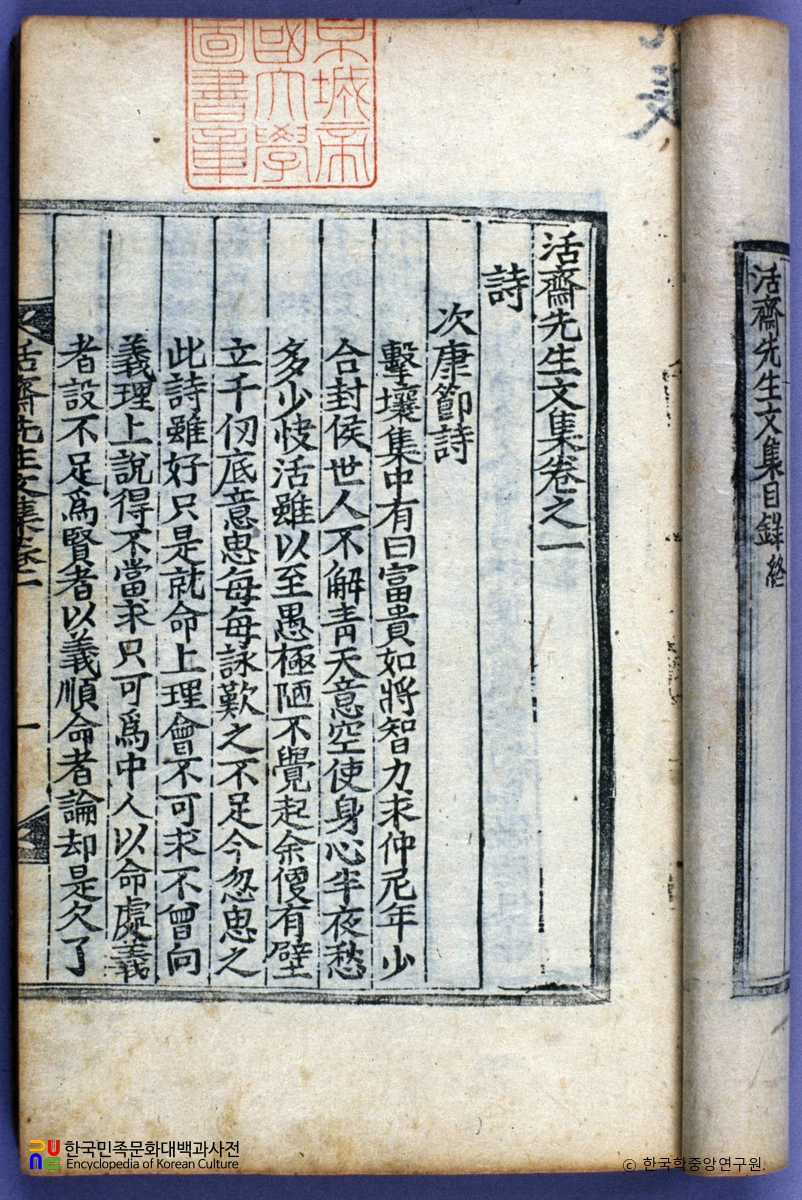 活齋先生文集目錄終
活齋先生文集卷之一
詩
次康節詩
擊壤集中有曰富貴如將智力求仲尼年少
合封侯世人不解靑天意空使身心半夜愁
多少快活雖以至愚極陋不覺起余懓有壁
立千仞底意思每每詠歎之不足今忽思之
此詩雖好只是就命上理會不可求不曾向
義理上說得不當求只可爲中人以命處義
者設不足爲賢者以義順命者論却是欠了
活齋先生文集卷一
一
京城帝
國大學
圖書章
한국민족문화대백과사전
Encyclopedia of Korean Culture
© 한국학중앙연구원.